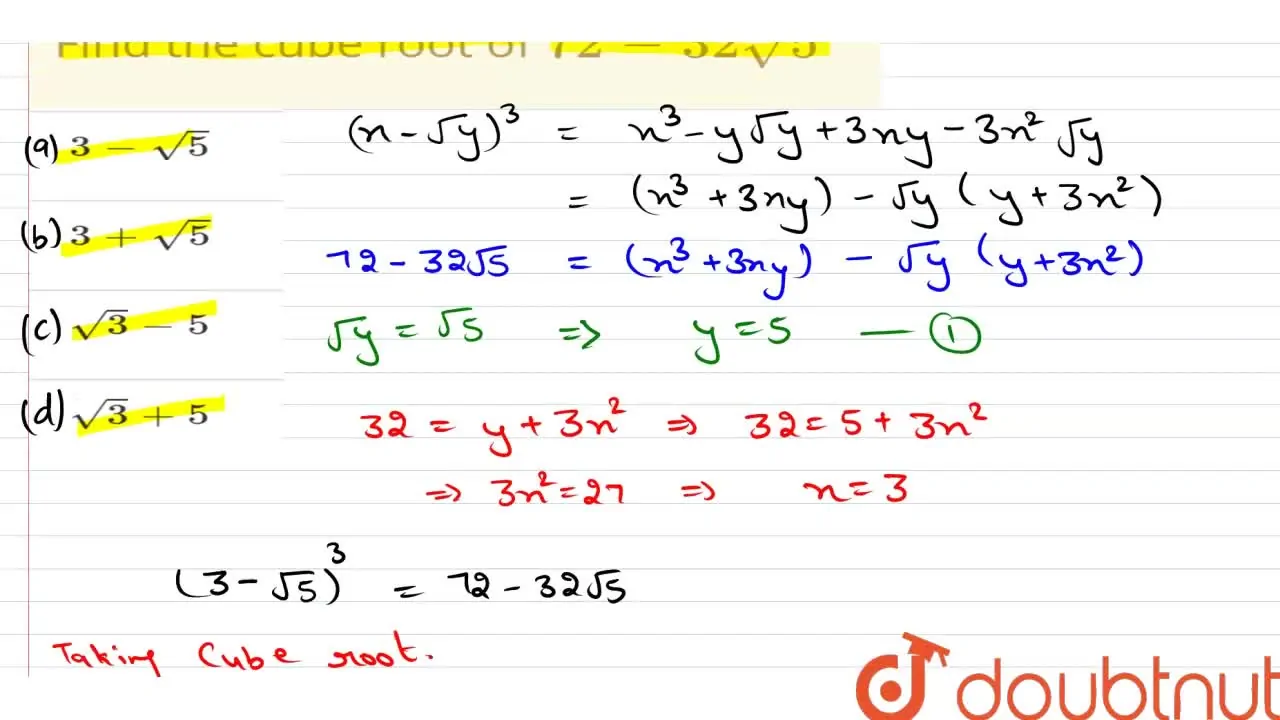 Find the cube root of 72 − 32√5
(a) 3 − √5
(b) 3 + √5
(c) √3 − 5
(d) √3 + 5
(x - √y)³ = x³ - y√y + 3xy - 3x² √y
= (x³ + 3xy) - √y (y + 3x²)
72 - 32√5 = (x³ + 3xy) - √y (y + 3x²)
√y = √5 => y = 5 — ①
32 = y + 3x² => 32 = 5 + 3x²
=> 3x² = 27 => x = 3
(3 - √5)³ = 72 - 32√5
Taking Cube root.
doubtnut